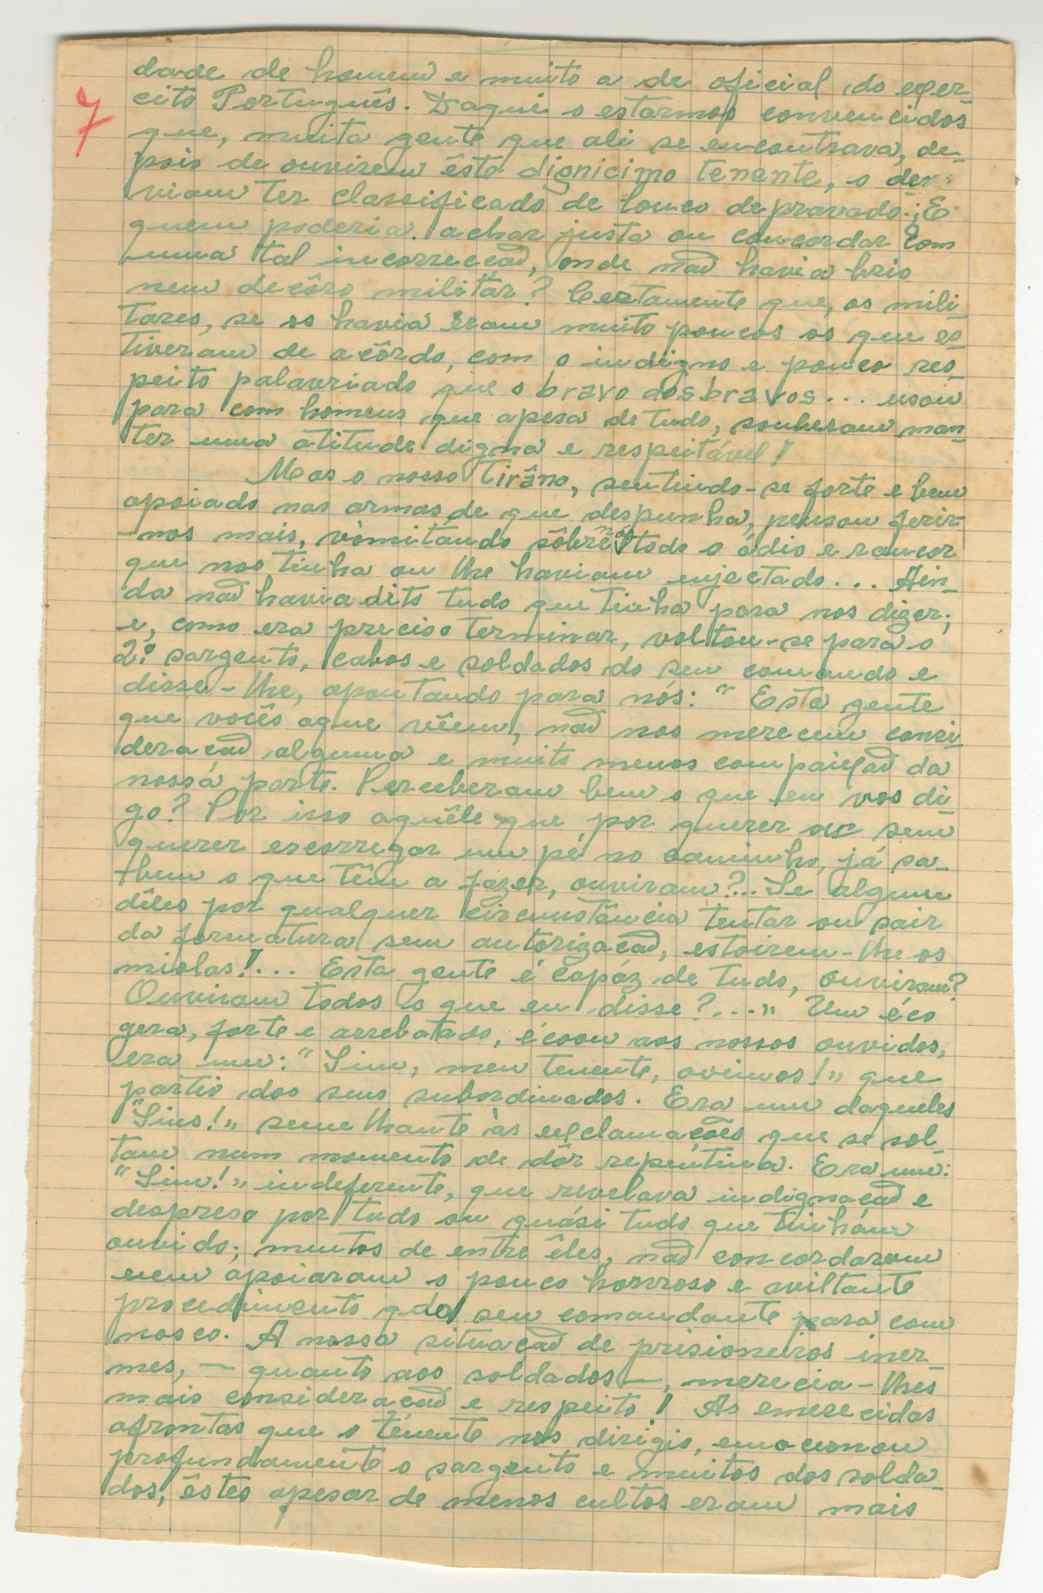 7
dade de homem e muito a de oficial do exer-
cito Português. Daqui o estarmos convencidos
que, muita gente que ali se encontrava, de-
pois de ouvirem êste dignicimo tenente, o de-
viam ter classificado de louco depravado! E
quem poderia achar justa ou concordar com
uma tal incorrecção, onde não havia brio
nem decôro militar? Certamente que, os mili-
tares, se os havia eram muito poucos os que es-
tiveram de acôrdo, com o indigno e pouco res-
peito palavriado que o bravo dos bravos... usou
para com homens que apesa de tudo, souberam man-
ter uma atitude digna e respeitável!
Mas o nosso tirâno, sentindo-se forte e bem
apoiado nas armas de que despunha, pensou ferir-
-nos mais, vómitando sôbre nós todo o ódio e rancor
que nos tinha ou lhe haviam injectado... Ain-
da não havia dito tudo que tinha para nos dizer;
e, como era preciso terminar, voltou-se para o
2.º sargento, cabos e soldados do seu comando e
disse-lhe, apontando para nós: "Esta gente
que vocês aqui vêem, não nos merecem consi-
deração alguma e muito menos compaixão da
nossa parte. Perceberam bem o que eu vos di-
go? Por isso aquêle que, por querer ou sem
querer escorregar um pé no caminho, já sa-
bem o que têm a fazer, ouviram?.. Se algum
dêles por qualquer circunstância tentar ou sair
da formatura sem autorização, estoirem-lhe os
miolos!... Esta gente é capáz de tudo, ouviram?
Ouviram todos o que eu disse?..." Um éco
gera, forte e arrebatado, écoou aos nossos ouvidos,
era um: "Sim, meu tenente, ovimos!" que
partio dos seus subordinados. Era um daqueles
"Sins!" semelhante às exclamações que se sol-
tam num momento de dôr repentina. Era um:
"Sim!" indeferente, que revelava indignação e
despreso por tudo ou quási tudo que tinham
ouvido; muitos de entre êles, não concordaram
nem apoiaram o pouco honroso e aviltante
procedimento do seu comandante para com
nosco. A nossa situação de prisioneiros iner-
mes, — quanto aos soldados —, merecia-lhes
mais consideração e respeito! As emerecidas
afrontas que o tenente nos dirigio, emocionou
profundamente o sargento e muitos dos solda-
dos; êstes apesar de menos cultos eram mais